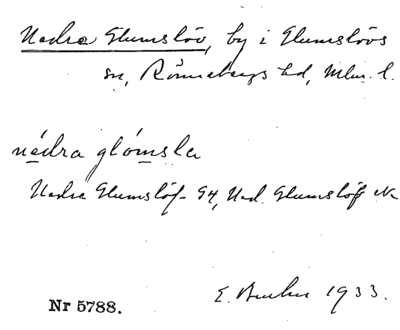 Nedra Glumslöv, by i Glumslövs
sn, Rönnebergs hd, Mlm. l.
nédra glómsla
Nedra Glumslöf GK, Ned. Glumslöf
E. 1933.
Nr 5788.